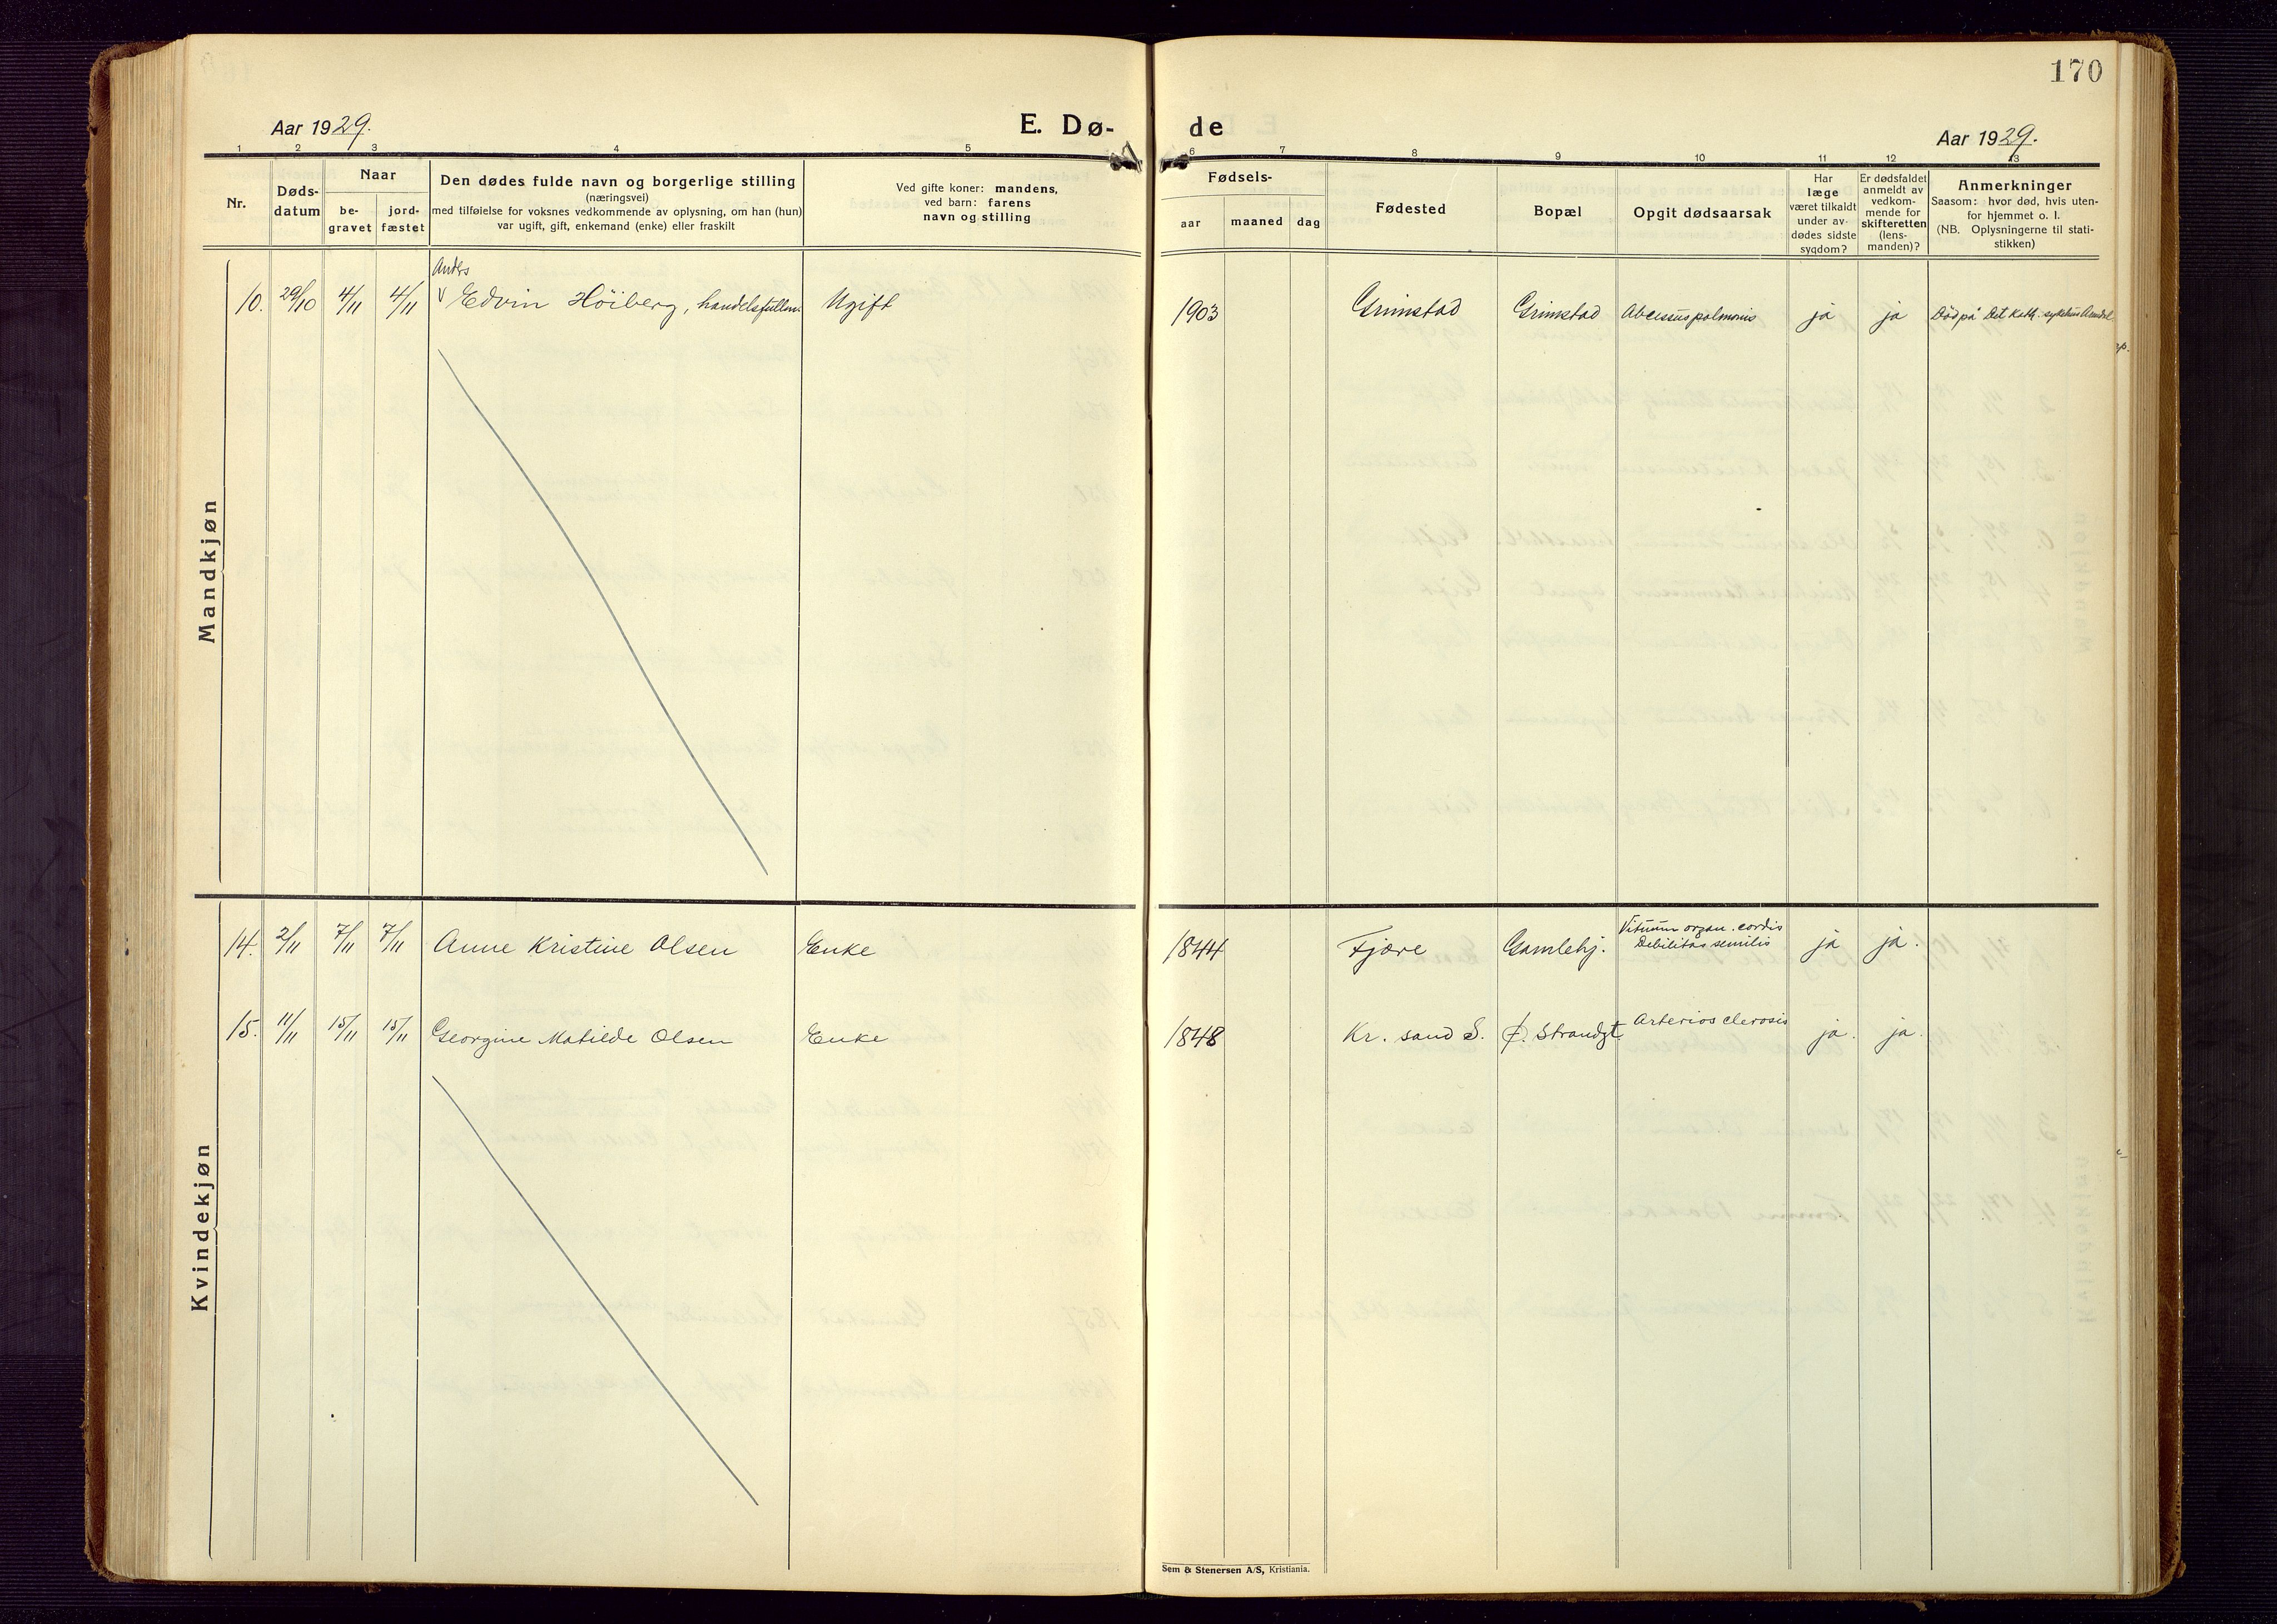 170
Aar 1929.
E. Dø-
de
Aar 1929.
1 2 3 4 5 6 7 8 9 10 11 12 13
Nr.
Døds-
datum
Naar
be-
gravet
jord-
fæstet
Den dødes fulde navn og borgerlige stilling
(næringsvei)
med tilføielse for voksnes vedkommende av oplysning, om han (hun)
var ugift, gift, enkemand (enke) eller fraskilt
Ved gifte koner: mandens,
ved barn: farens
navn og stilling
Fødsels-
aar maaned dag
Fødested
Bopæl
Opgit dødsaarsak
Har
læge
været tilkaldt
under av-
dødes sidste
sygdom?
Er dødsfaldet
anmeldt av
vedkom-
mende for
skifteretten
(lens-
manden)?
Anmerkninger
Saasom: hvor død, hvis uten-
for hjemmet o. l.
(NB. Oplysningerne til stati-
stikken)
Mandkjøn
Anders
10. 29/10 4/11 4/11 Edvin Höiberg, handelsfullm. Ugift 1903 Grimstad Grimstad Abcessus polmonis ja ja Död på Det Kath. sykehus Arendal
Kvindekjøn
Vitium organ. cordis
14. 2/11 7/11 7/11 Anne Kristine Olsen Enke 1844 Fjære Gamlehj. Debilitas senilis ja ja.
15. 11/11 15/11 15/11 Georgine Matilde Olsen Enke 1848 Kr. sand S. Ø. Strandgt. Arteriosclerosis ja. ja.
Sem & Stenersen A/S, Kristiania.